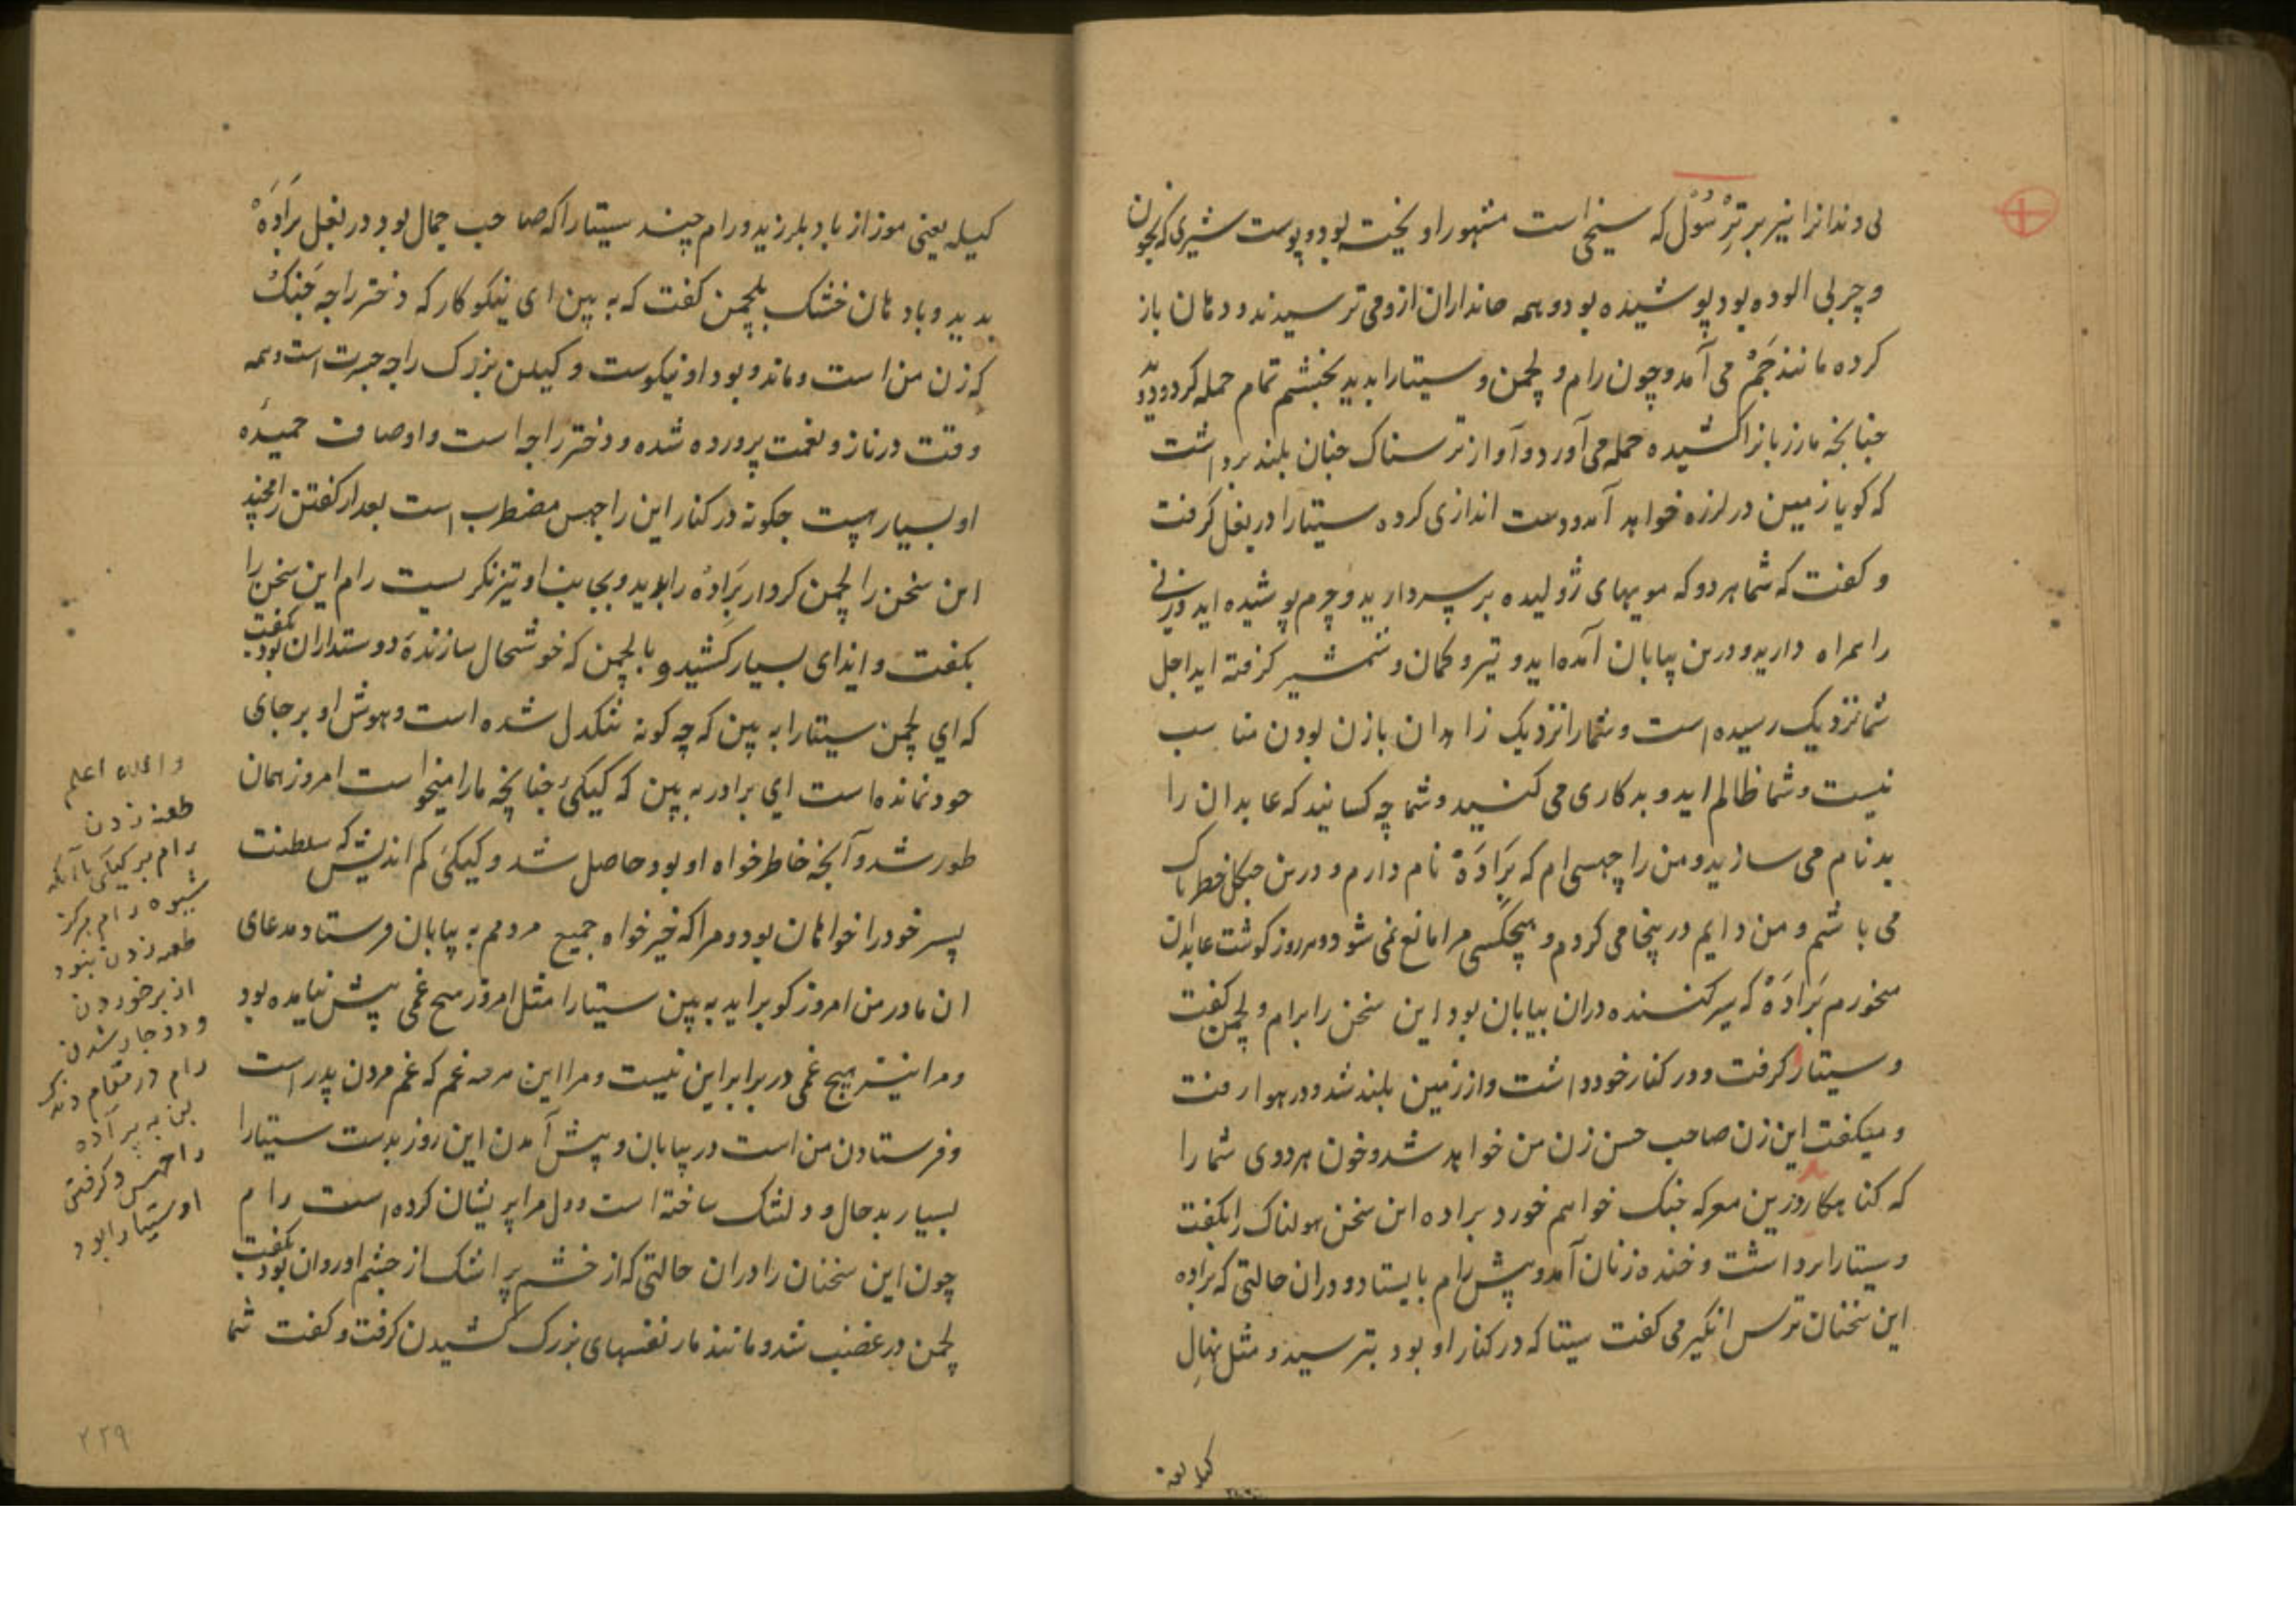 لی دندانرا نیز بر تِرْسُوْل که سیخی است مشهور اویخته بود و پوست شیری که بخون
و چربی الوده بود پوشیده بود و همه جانداران ازو می ترسیدند و دهان باز
کرده مانند جَمْ می آمد و چون رام و لچمن و سیتا را بدید بخشم تمام حمله کرد و دوید
چنانچه مار زبانرا کشیده حمله می آورد و آواز ترسناک چنان بلند برداشت
که کویا زمین در لرزه خواهد آمد و دست اندازی کرده سیتا را در بغل کرفت
و کفت که شما هر دو که مویهای ژولیده بر سر دارید و چرم پوشیده اید و زنی
را همراه دارید و درین بیابان آمده اید و تیر و کمان و شمشیر کرفته اید اجل
شما نزدیک رسیده است و شما را نزدیک زاهدان با زن بودن مناسب
نیست و شما ظالم اید و بدکاری می کنید و شما چه کسانید که عابدان را
بدنام می سازید و من راچهسی ام که بَرَادَهْ نام دارم و درین جنکل خطرناک
می باشم و من دایم درینجا می کردم و هیچکسی مرا مانع نمی شود و هر روز کوشت عابدان
میخورم بَرَادَهْ که سیر کننده دران بیابان بود این سخن را برام و لچمن کفت
و سیتا را کرفت و در کنار خود داشت و از زمین بلند شد و در هوا رفت
و میکفت این زن صاحب حسن زن من خواهد شد و خون هر دوی شما را
که کنا هکارید درین معرکه جنک خواهم خورد براده این سخن هولناک را بکفت
و سیتا را برداشت و خنده زنان آمد و پیش رام بایستاد و دران حالتی که براده
این سخنان ترس انکیز می کفت سیتا که در کنار او بود بترسید و مثل نهالِ
کیله یعنی
کیله یعنی موز از باد بلرزید و رام چند سیتا را که صاحب جمال بود در بغل بَرَادَهْ
بدید و با دهان خشک بلچمن کفت که به بین ای نیکوکار که دختر راجه جَنَکْ
که زن من است و ماند و بود او نیکوست و کیلن بزرک راجه جسرت است و همه
وقت در ناز و نعمت پرورده شده و دختر راجه است و اوصاف حمیدَه
او بسیارست چکونه در کنار این راچهس مضطرب است بعد از کفتن رامچند
این سخن را لچمن کردار بَرَادَهْ را بدید و بجانب او تیز نکریست رام این سخن را
بکفت و ایذای بسیار کشید و با لچمن که خوشحال سازندهٔ دوستداران بود بکفت
که ای لچمن سیتا را به بین که چه کونه تنکدل شده است و هوش او بر جای
خود نمانده است ای برادر به بین که کیکَیْ چنانچه ما را میخواست امروز همان
طور شد و آنچه خاطر خواه او بود حاصل شد و کیکَیْ کم اندیش که سلطنت
پسر خود را خواهان بود و مرا که خیرخواه جمیع مردمم به بیابان فرستاد مدعای
ان مادر من امروز کو براید به بین سیتا را مثل امروز هیچ غمی پیش نیامده بود
و مرا نیز هیچ غمی در برابر این نیست و مرا این همه غم که غم مردن پدر است
و فرستادن من است در بیابان و پیش آمدن این روز بدست سیتا را
بسیار بدحال و دلتنک ساخته است و دل مرا پریشان کرده است رام
چون این سخنان را دران حالتی که از خشم پر اشک از چشم او روان بود بکفت
لچمن در غضب شد و مانند مار نفسهای بزرک کشیدن کرفت و کفت شما
والله اعلم
طعنه زدن
رام بر کیکَی با آنکه
شیوه رام هرکز
طعنه زدن نبود
از برخوردن
و دوچار شدن
رام در مقام دندک
بن به براده
راچهس و کرفتن
او سیتا را بود
۲۲۹